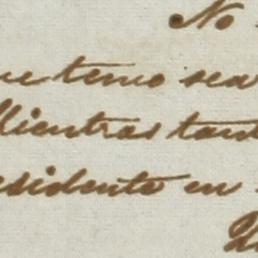 No
ue temo sea
Mientras tant
esidente en